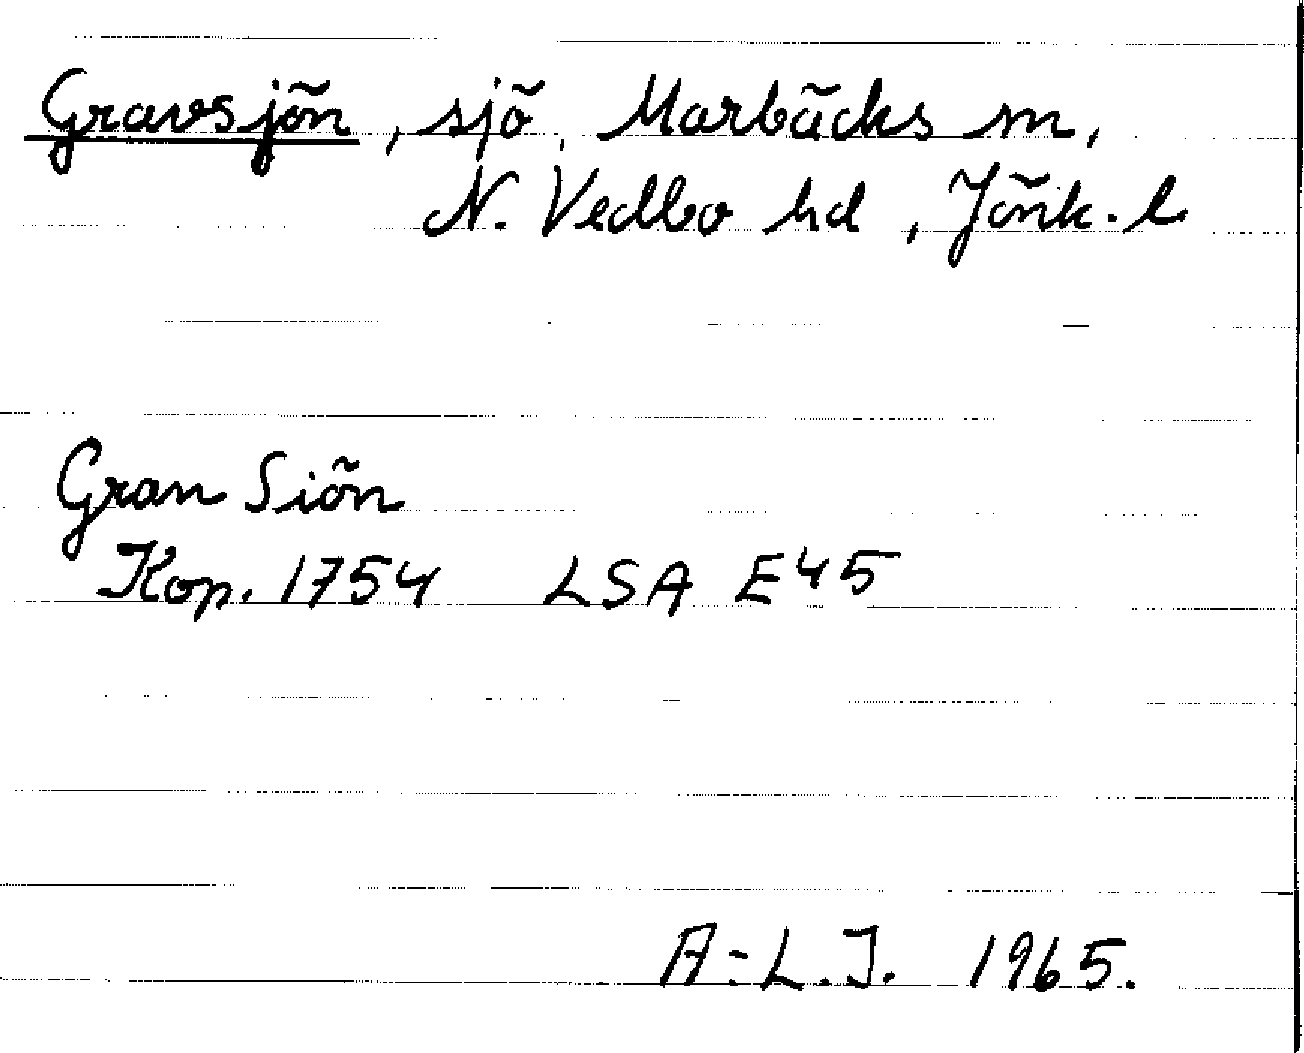 Gravsjön, sjö, Marbäcks sn,
N. Vedbo hd, Jönk. l
Gran Siön
Kop. 1754 LSA E45
A-L.J. 1965.